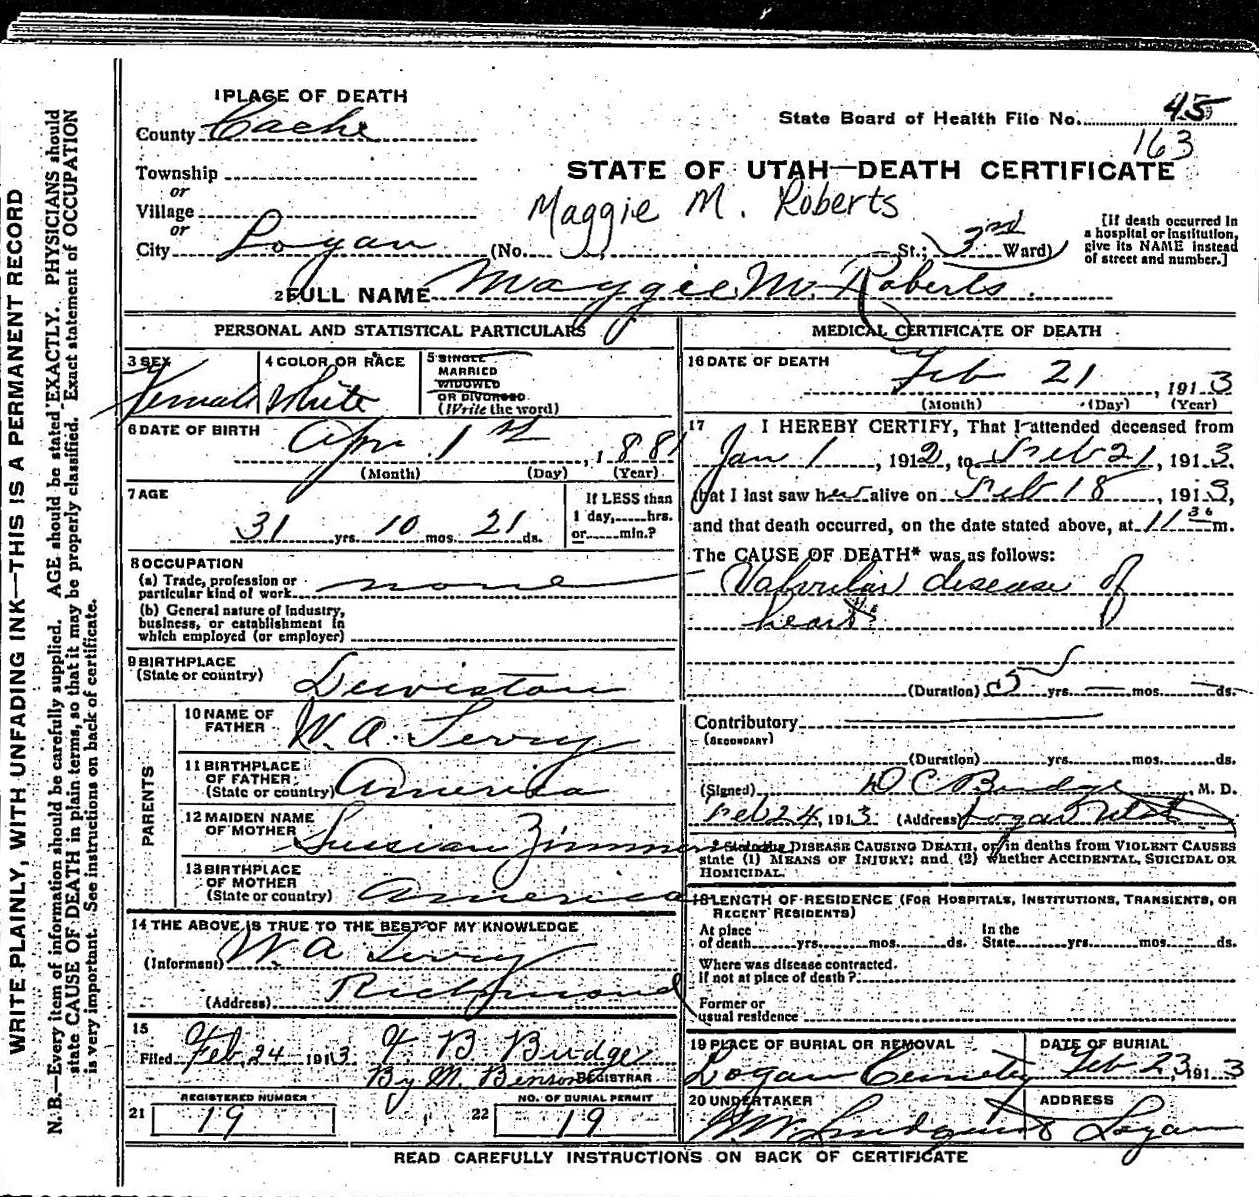 WRITE PLAINLY, WITH UNFADING INK—THIS IS A PERMANENT RECORD
N.B.—Every item of information should be carefully supplied. AGE should be stated EXACTLY. PHYSICIANS should
state CAUSE OF DEATH in plain terms, so that it may be properly classified. Exact statement of OCCUPATION
is very important. See instructions on back of certificate.
1 PLACE OF DEATH
County Cache
State Board of Health File No. 45
163
Township
or
Village
or
City Logan
STATE OF UTAH—DEATH CERTIFICATE
Maggie M. Roberts
(No. St.; 3rd Ward)
[If death occurred in
a hospital or institution,
give its NAME instead
of street and number.]
2 FULL NAME Maggie M. Roberts
PERSONAL AND STATISTICAL PARTICULARS
3 SEX
Female
4 COLOR OR RACE
White
5 SINGLE
MARRIED
WIDOWED
OR DIVORCED
(Write the word)
6 DATE OF BIRTH
Apr 1st, 1881
(Month) (Day) (Year)
7 AGE
31 yrs. 10 mos. 21 ds.
If LESS than
1 day, hrs.
or min.?
8 OCCUPATION
(a) Trade, profession or
particular kind of work none
(b) General nature of industry,
business, or establishment in
which employed (or employer)
9 BIRTHPLACE
(State or country) Lewiston
PARENTS
10 NAME OF
FATHER W. A. Terry
11 BIRTHPLACE
OF FATHER
(State or country) America
12 MAIDEN NAME
OF MOTHER
13 BIRTHPLACE
OF MOTHER
(State or country) America
14 THE ABOVE IS TRUE TO THE BEST OF MY KNOWLEDGE
(Informant) W. A Terry
(Address) Richmond
15
Filed Feb 24 1913 B Budge
By M. Benson REGISTRAR
21 REGISTERED NUMBER
19
22 NO. OF BURIAL PERMIT
19
MEDICAL CERTIFICATE OF DEATH
16 DATE OF DEATH
Feb 21, 1913
(Month) (Day) (Year)
17 I HEREBY CERTIFY, That I attended deceased from
Jan 1, 1912, to Feb 21, 1913,
that I last saw her alive on Feb 18, 1913,
and that death occurred, on the date stated above, at 11 36 m.
The CAUSE OF DEATH* was as follows:
Valvular disease of
heart
(Duration) yrs. — mos. — ds.
Contributory
(SECONDARY)
(Duration) yrs. mos. ds.
(Signed) D C Budge, M. D.
Feb 24, 1913 (Address) Logan Utah
* State the DISEASE CAUSING DEATH, or, in deaths from VIOLENT CAUSES
state (1) MEANS OF INJURY; and (2) whether ACCIDENTAL, SUICIDAL OR
HOMICIDAL.
18 LENGTH OF RESIDENCE (FOR HOSPITALS, INSTITUTIONS, TRANSIENTS, OR
RECENT RESIDENTS)
At place
of death yrs. mos. ds.
In the
State yrs. mos. ds.
Where was disease contracted.
If not at place of death?
Former or
usual residence
19 PLACE OF BURIAL OR REMOVAL
Logan Cemetery
DATE OF BURIAL
Feb 23, 1913
20 UNDERTAKER
ADDRESS
Logan
READ CAREFULLY INSTRUCTIONS ON BACK OF CERTIFICATE